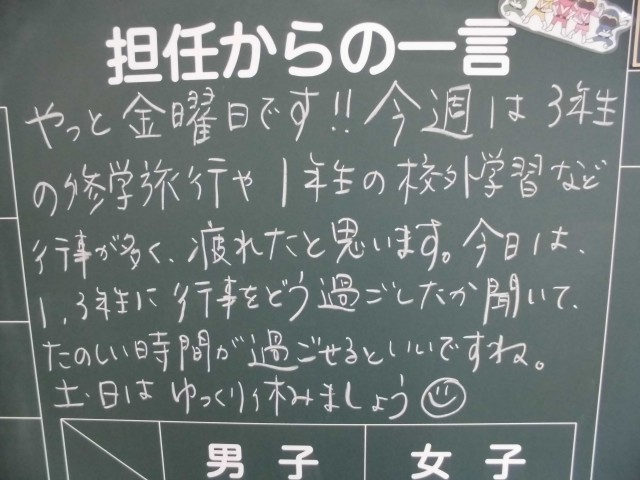 担任からの一言
やっと金曜日です!!今週は3年生
の修学旅行や1年生の校外学習など
行事が多く、疲れたと思います。今日は、
1,3年生に行事をどう過ごしたか聞いて、
たのしい時間が過ごせるといいですね。
土・日はゆっくり休みましょう
男子 女子